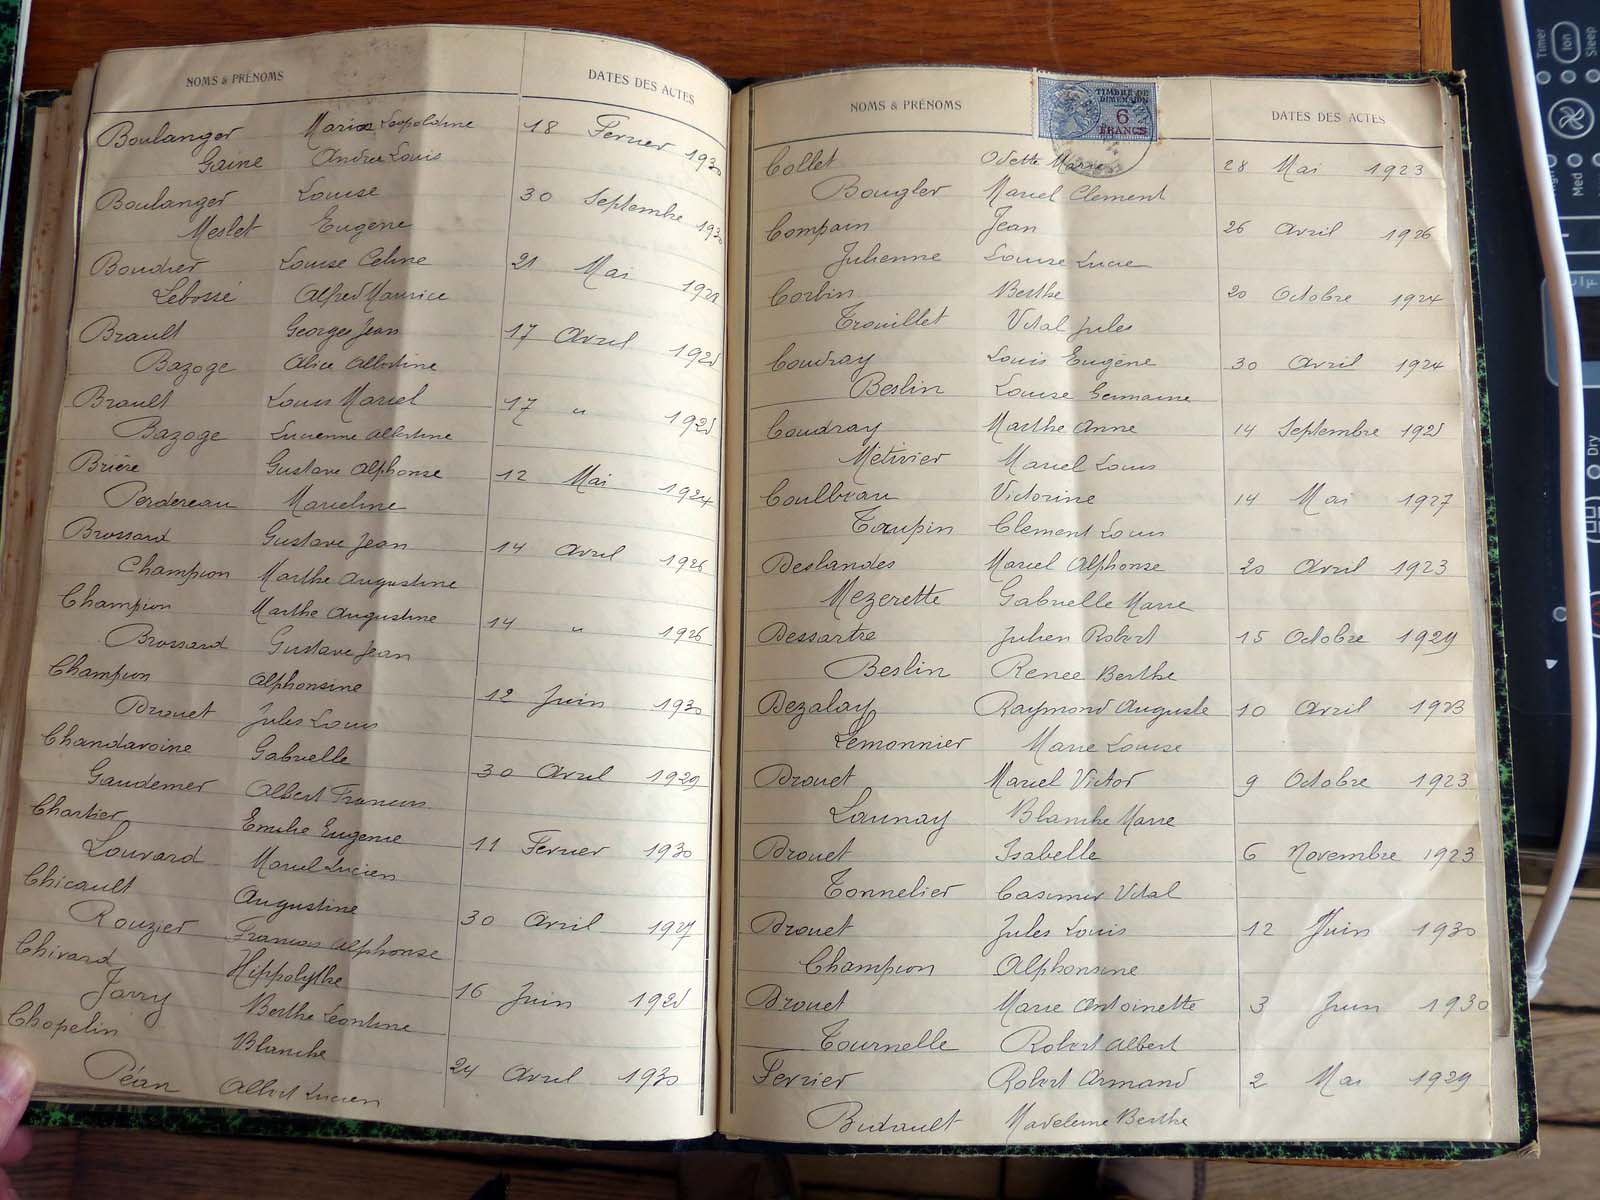 NOMS & PRÉNOMS DATES DES ACTES
Boulanger Maria Leopoldine 18 Fevrier 1930
Gaine Andre Louis
Boulanger Louise 30 Septembre 1930
Meslet Eugene
Boudier Louise Celine 21 Mai
Lebossé Alfred Maurice
Brault Georges Jean 17 Avril 1928
Bazoge Alice Albertine
Brault Louis Marcel 17 " 1928
Bazoge Lucienne Albertine
Brière Gustave Alphonse 12 Mai 1924
Perdereau Marceline
Brossard Gustave Jean 14 Avril 1926
Champion Marthe Augustine
Champion Marthe Augustine 14 " 1926
Brossard Gustave Jean
Champion Alphonsine 12 Juin 1930
Drouet Jules Louis
Chandavoine Gabrielle 30 Avril 1929
Gaudemer Albert Francois
Chartier Emilie Eugenie 11 Fevrier 1930
Louvard Marcel Lucien
Chicault Augustine 30 Avril 1927
Rouzier Francois Alphonse
Chivard Hippolythe 16 Juin 1928
Jarry Berthe Leontine
Chopelin Blanche 24 Avril 1930
Péan Albert Lucien
NOMS & PRÉNOMS DATES DES ACTES
TIMBRE DE
DIMENSION
6
FRANCS
Collet Odette Marie 28 Mai 1923
Bougler Marcel Clement
Compain Jean 26 Avril 1926
Julienne Louise Lucie
Corbin Berthe 20 Octobre 1924
Trouillet Vital Jules
Coudray Louis Eugène 30 Avril 1924
Beslin Louise Germaine
Coudray Marthe Anne 14 Septembre 1928
Métivier Marcel Louis
Coulbeau Victorine 14 Mai 1927
Taupin Clement Louis
Deslandes Marcel Alphonse 20 Avril 1923
Mezerette Gabrielle Marie
Dessartre Julien Robert 15 Octobre 1929
Beslin Renee Berthe
Dezalay Raymond Auguste 10 Avril 1923
Lemonnier Marie Louise
Drouet Marcel Victor 9 Octobre 1923
Launay Blanche Marie
Drouet Isabelle 6 Novembre 1923
Tonnelier Casimir Vital
Drouet Jules Louis 12 Juin 1930
Champion Alphonsine
Drouet Marie Antoinette 3 Juin 1930
Tournelle Robert Albert
Ferrier Robert Armand 2 Mai 1929
Budault Madeleine Berthe
Timer
Ion
Sleep
Med
Dry